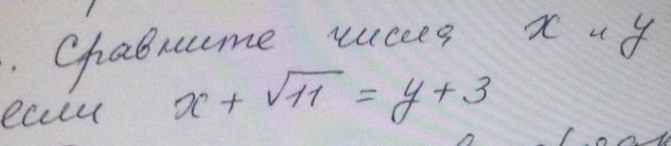 . Сравните числа x и y
если x + √11 = y + 3